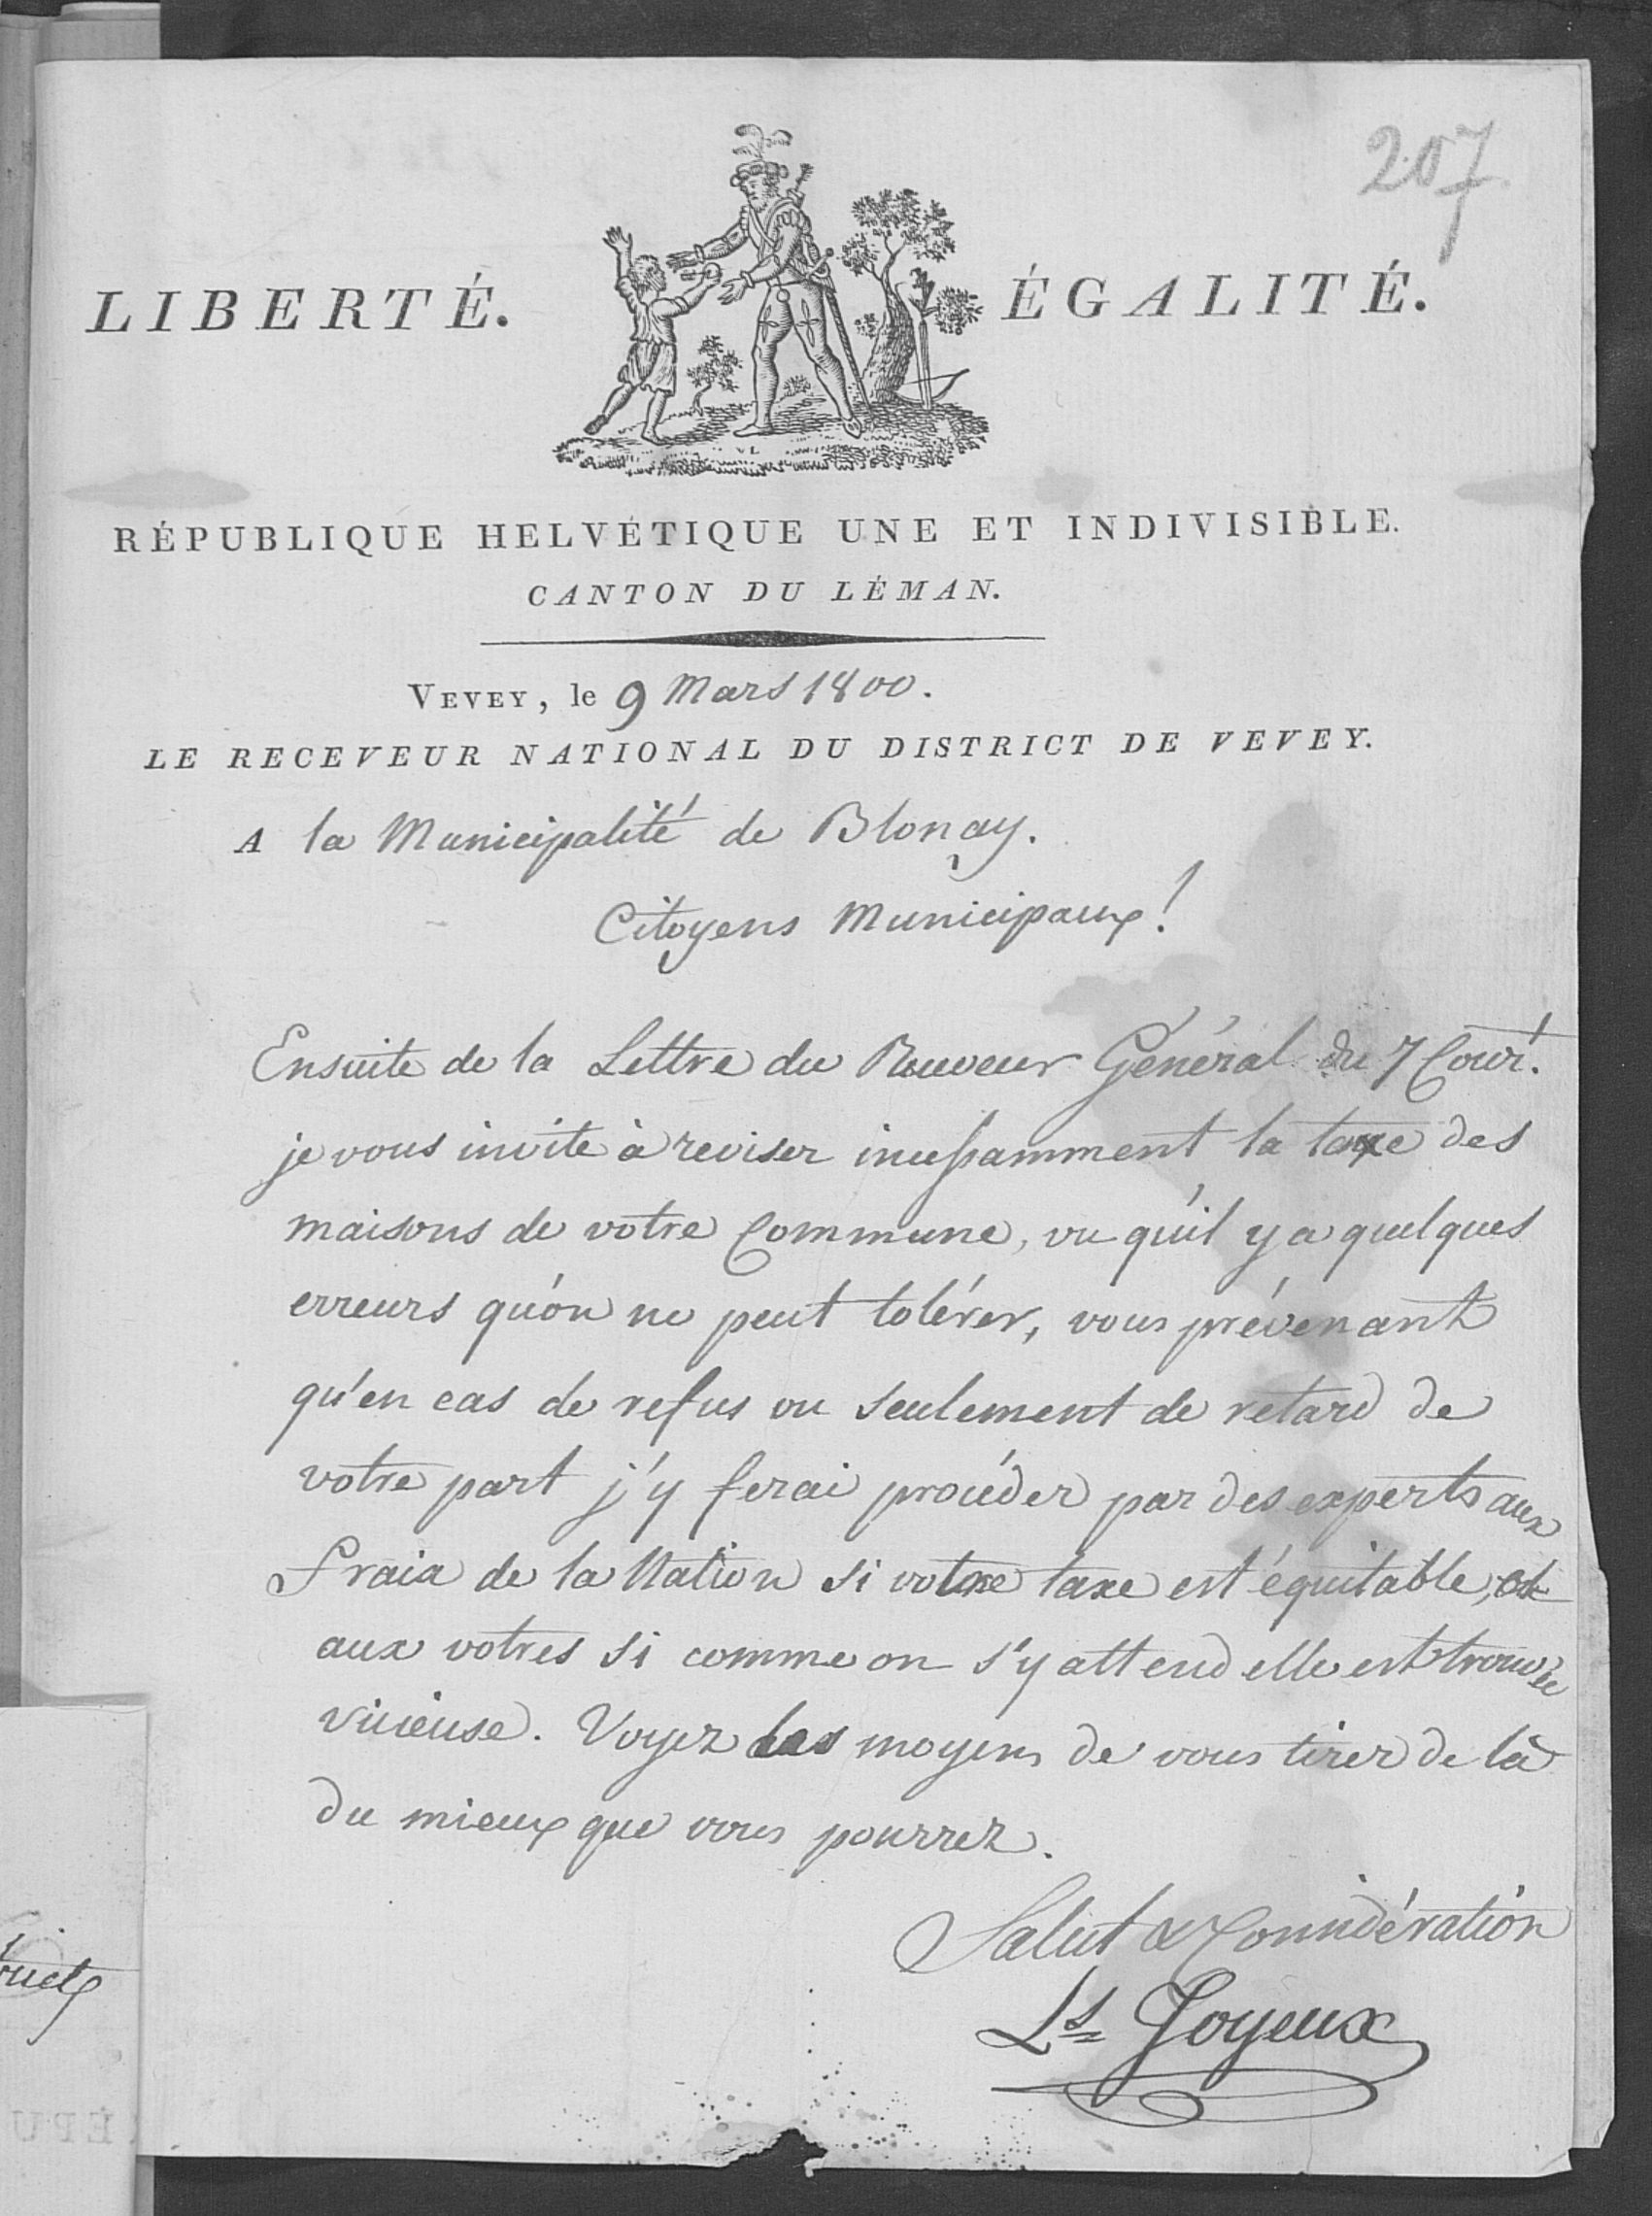 207
LIBERTÉ. ÉGALITÉ.
RÉPUBLIQUE HELVÉTIQUE UNE ET INDIVISIBLE.
CANTON DU LÉMAN.
VEVEY, le 9 Mars 1800.
LE RECEVEUR NATIONAL DU DISTRICT DE VEVEY.
A la Municipalité de Blonay.
Citoyens Municipaux!
Ensuite de la Lettre du Receveur Général du 7 Cour.t
je vous invite à reviser incessamment la taxe des
maisons de votre Commune, vu qu'il y a quelques
erreurs qu'on ne peut tolérer, vous prévenant
qu'en cas de refus ou seulement de retard de
votre part j'y ferai procéder par des experts aux
fraix de la Nation si votre taxe est équitable, et
aux votres si comme on s'y attend elle est trouvée
vicieuse. Voyez les moyens de vous tirer de là
du mieux que vous pourrez.
Salut & Considération
Ls Joyeux
ÉPU